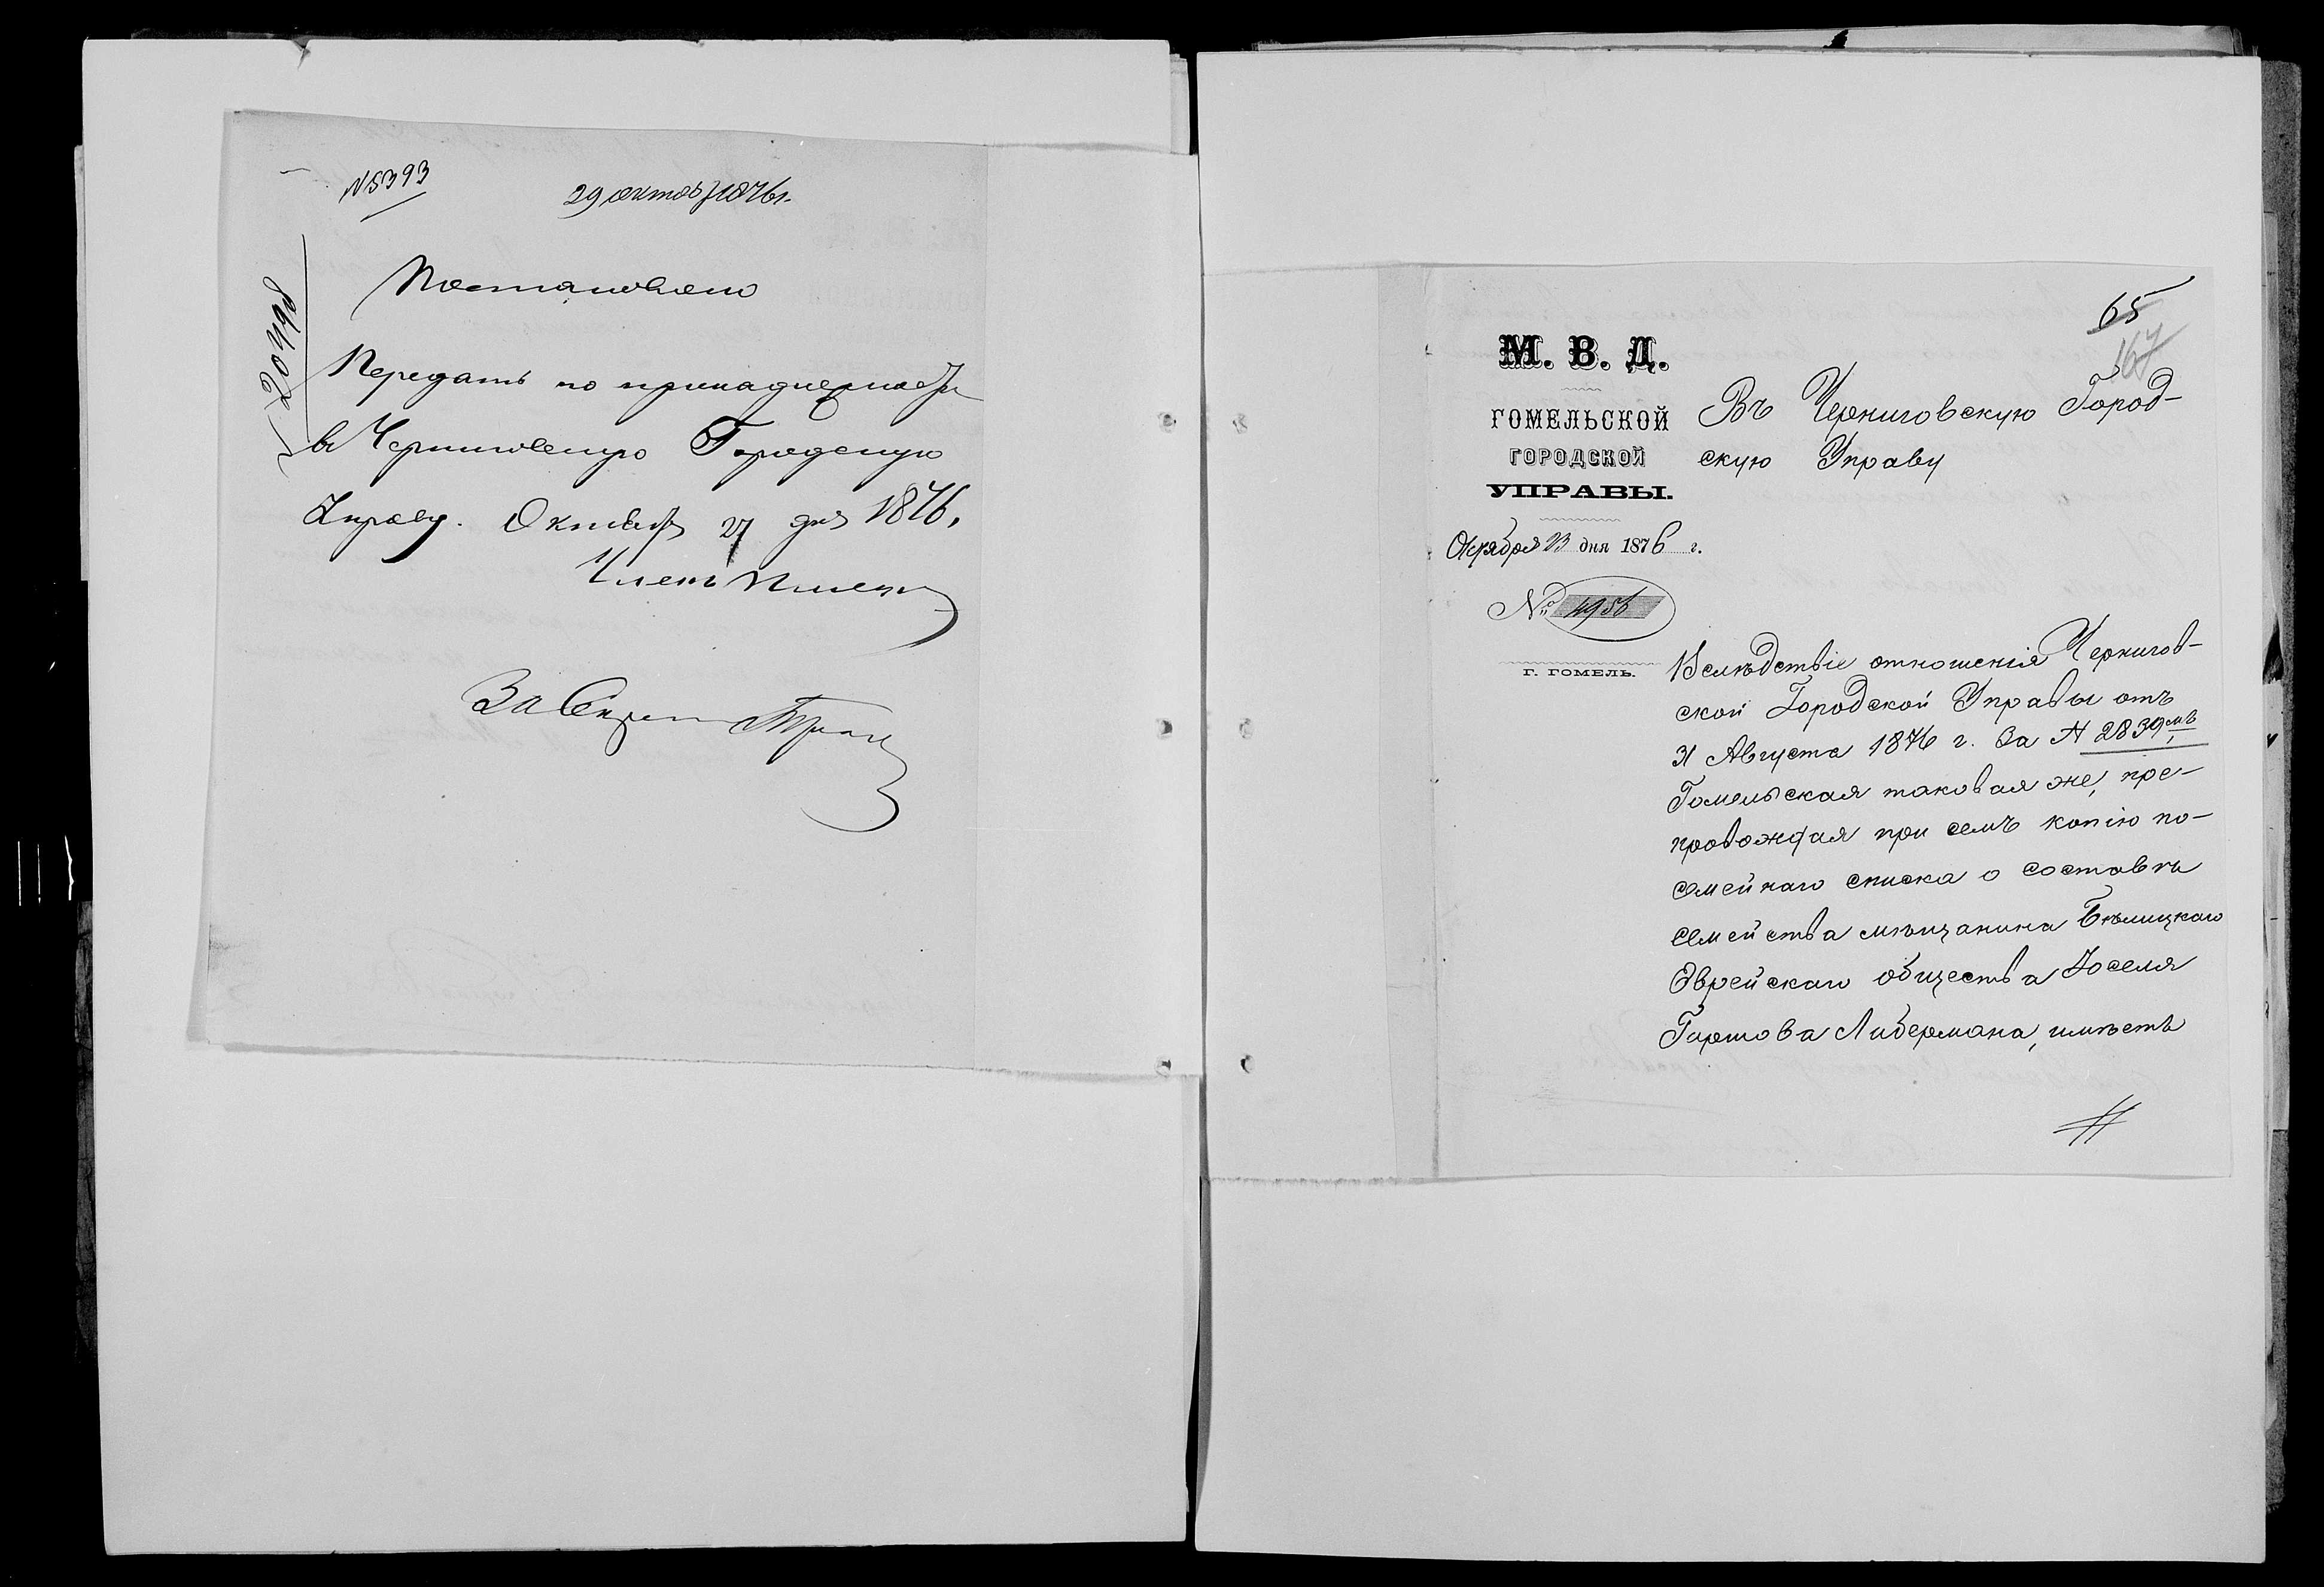 № 5393
29 октяб 1876 г.
20498
Постановлено
Передать по принадлежности
въ Черниговскую Городскую
Управу. Октября 27 дня 1876,
Членъ
За Секрет
65
167
М. В. Д.
ГОМЕЛЬСКОЙ
ГОРОДСКОЙ
УПРАВЫ.
Октября 23 дня 1876 г.
№ 4956
Г. ГОМЕЛЬ.
Въ Черниговскую Город-
скую Управу
Вслѣдствіе отношенія Чернигов-
ской Городской Управы отъ
31 Августа 1876 г. за № 2839мъ,
Гомельская таковая же, пре-
провождая при семъ копію по-
семейнаго списка о составѣ
семейства мѣщанина Бѣлицкаго
Еврейскаго общества Іоселя
Гиршова Либермана, имѣетъ